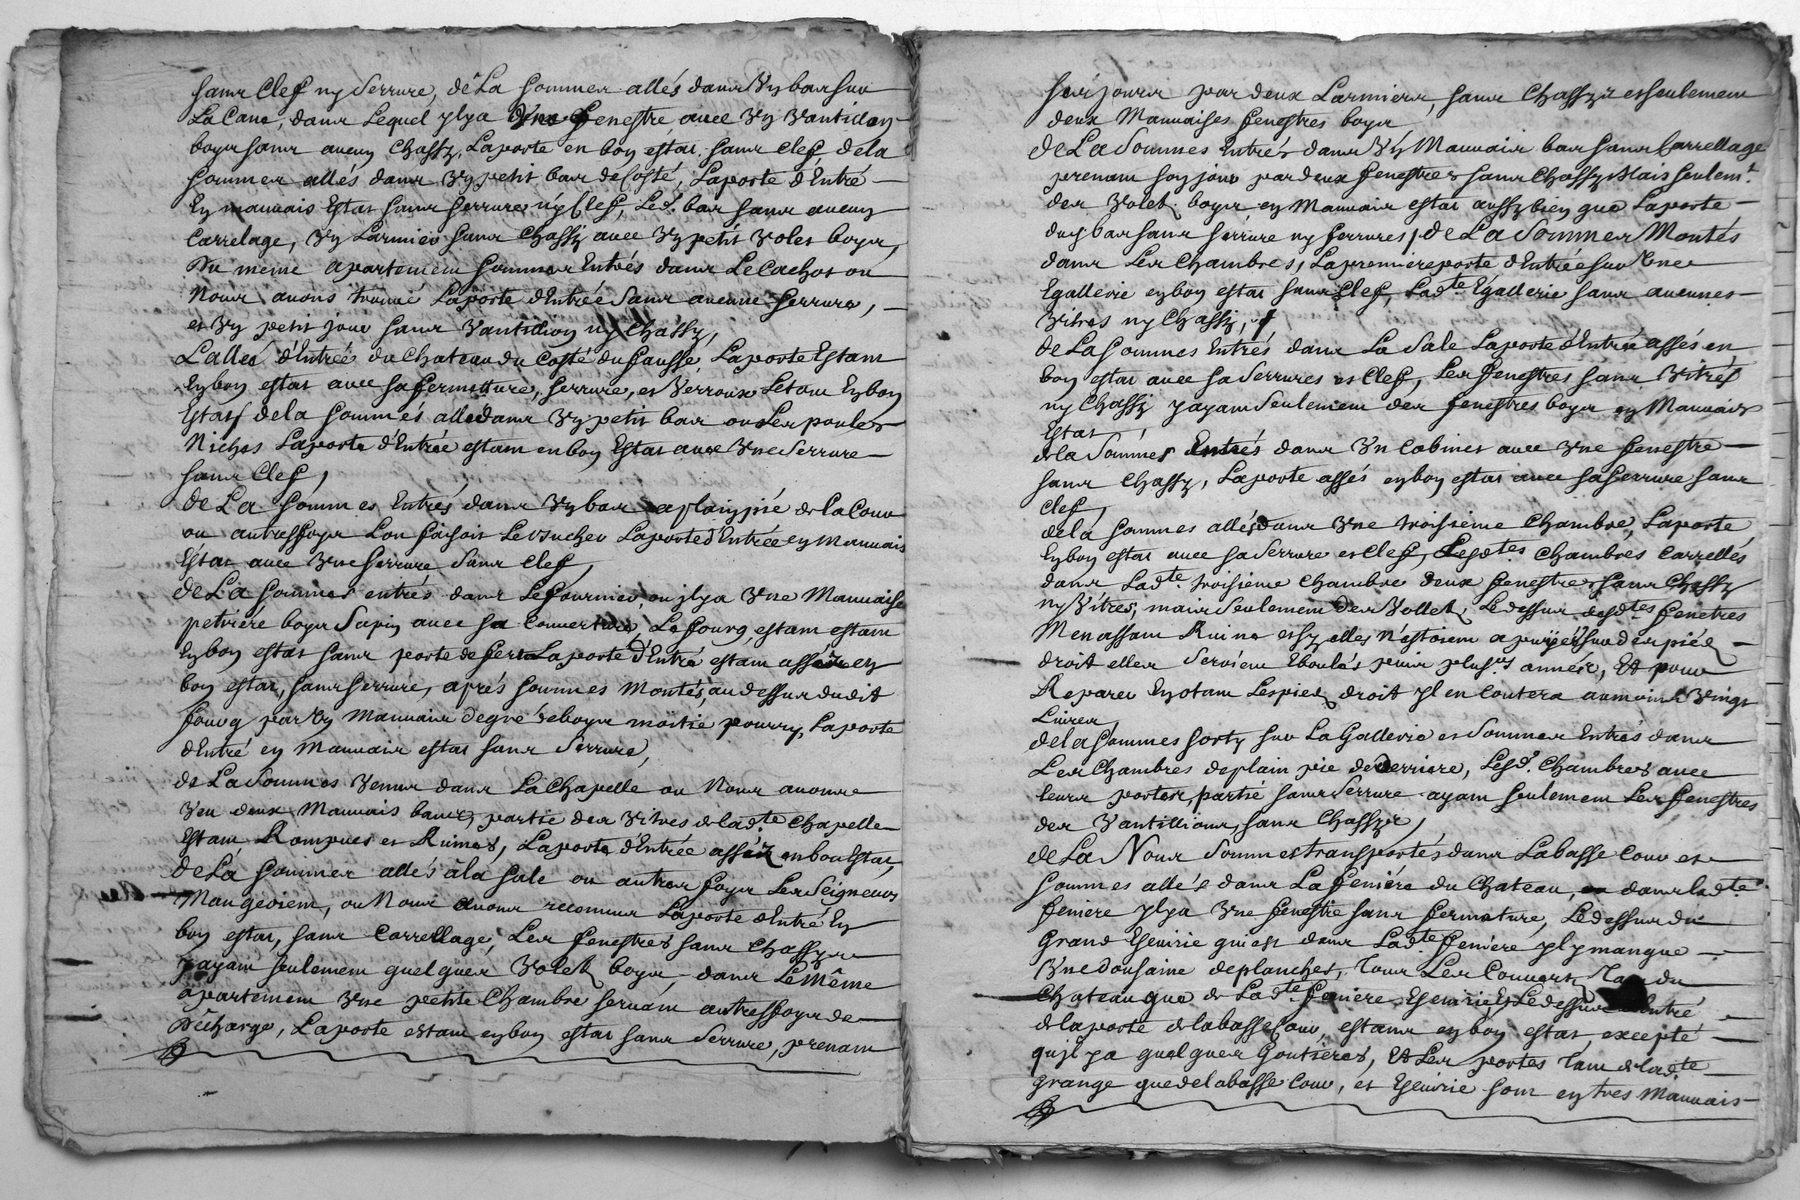 sans Clef ny Serrure, de La sommes allés dans Vn bas sur
La Cave, dans Lequel ylya Vne fenestre avec Vn Vantillon
boyr sans aucun Chassy, Laporte en bon estat sans Clef de la
sommes allés dans Vn petit bas de Costé, Laporte d'Entré
En mauvais Estat sans serrure ny Clef, Led. bas sans aucun
Carrelage, Vn Larmier sans Chassy avec Vn petit Volet boyr,
Du meme apartement sommes Entrés dans Le Cachot ou
Nous avons trouvé Laporte d'Entrée Sans aucune serrure,
et Vn petit jour sans Vantillon ny Chassy,
L'allée d'Entrée du Chateau du Costé du faussé, Laporte Estant
En bon estat avec sa fermetture, serrure, et Verroux Letout En bon
Estat de la sommes allé dans Vn petit bas ou Les poules
Niches Laporte d'Entrée estant en bon Estat avec Vne Serrure
sans Clef,
de La sommes Entrés dans Vn bas a plain pié de la Cour
ou autresfoyr L'on faisoit Le bucher Laporte d'Entrée en Mauvais
Estat avec Vne serrure Sans Clef,
de La sommes entrés dans Le fournier, ou jlya Vne Mauvaise
petriére boyr Sapin avec sa Couverture, Le fourg estant estant
En bon estat sans porte de fert Laporte d'Entré estant asséz en
bon estat, sans serrure, aprés sommes Montés, au dessus dudit
fourg par Vn Mauvais degré de boyr moitié pourry, Laporte
d'Entré en Mauvais estat sans Serrure,
de La Sommes Venus dans La Chapelle ou Nous avons
Veu deux Mauvais bancs, partie des Vitres de lad.te Chapelle
Estant Rompues et Ruinés, Laporte d'Entrée asséz en bon Estat,
de La sommes allés à la sale ou autres foyr Les Seigneurs
Mangeoient, ou Nous avons reconnus Laporte d'Entré En
bon estat, sans Carrellage, Les fenestres sans Chassyr
yayant seulement quelques Volet boyr, dans Le Même
apartement Vne petite Chambre servant autresfoyr de
Décharge, Laporte estant en bon estat sans Serrure, prenant
ses jours par deux Larmiers, sans Chassyr et seulement
deux Mauvaises fenestres boyr
de La Sommes Entrés dans Vn Mauvais bas sans Carrellage
prenant son jour par deux fenestres sans Chassyr Mais seulem.t
des Volet boyr en Mauvais estat aussy bien que Laporte
du bas sans serrure ny ferrures, de La Sommes Montés
dans Les Chambres, La premiere porte d'Entrée sur Vne
Egallerie en bon estat sans Clef, Lad.te Egallerie sans aucunes
Vitres ny Chassy,
de La sommes Entrés dans La Sale Laporte d'Entrée assés en
bon estat avec sa Serrures et Clef, Les fenestres sans Vitres
ny Chassy yayant Seulement des fenestres boyr en Mauvais
Estat
de la Sommes Entrés dans Vn Cabinet avec Vne fenestre
sans Chassy, Laporte assés en bon estat avec sa serrure sans
Clef,
de la sommes allés dans Vne troisiéme Chambre, Laporte
En bon estat avec sa Serrure et Clef, Lesd.tes Chambres Carrellés
dans Lad.te troisiéme Chambre deux fenestres sans Chassy
ny Vitres, mais Seulement des Vollet, Le dessus desd.tes fenetres
Menassant Ruine et sy elles n'estoient apuyés sur des piéd
droit elles Seroient Eboulés depuis plus.rs année, Et pour
Reparer En otant Les pied droit yl en Coutera au moins Vingt
Livres,
de la sommes sorty sur La Gallerie et Sommes Entrés dans
Les Chambres de plain pie de derriere, Lesd. Chambres avec
leurs portes, partie sans Serrure ayant seulement Les fenestres
des Vantillions, sans Chassyr,
de La Nous Sommes transportés dans La basse Cour et
sommes allés dans La feniére du Chateau, dans lad.te
feniere ylya Vne fenestre sans fermeture, Le dessus du
Grand Egeuirie qui est dans Lad.te feniere yly manque
Vne dousaine de planches, Tous Les Couvert Tant du
Chateau que de Lad.te feniere, Egeuirie, Et Le dessus Entré
de la porte de la basse Cour, estant en bon estat, excepté
qu'jlya quelques Goutiéres, Et Les portes Tant de lad.te
grange que de la basse Cour, et Egeuirie sont en tres Mauvais